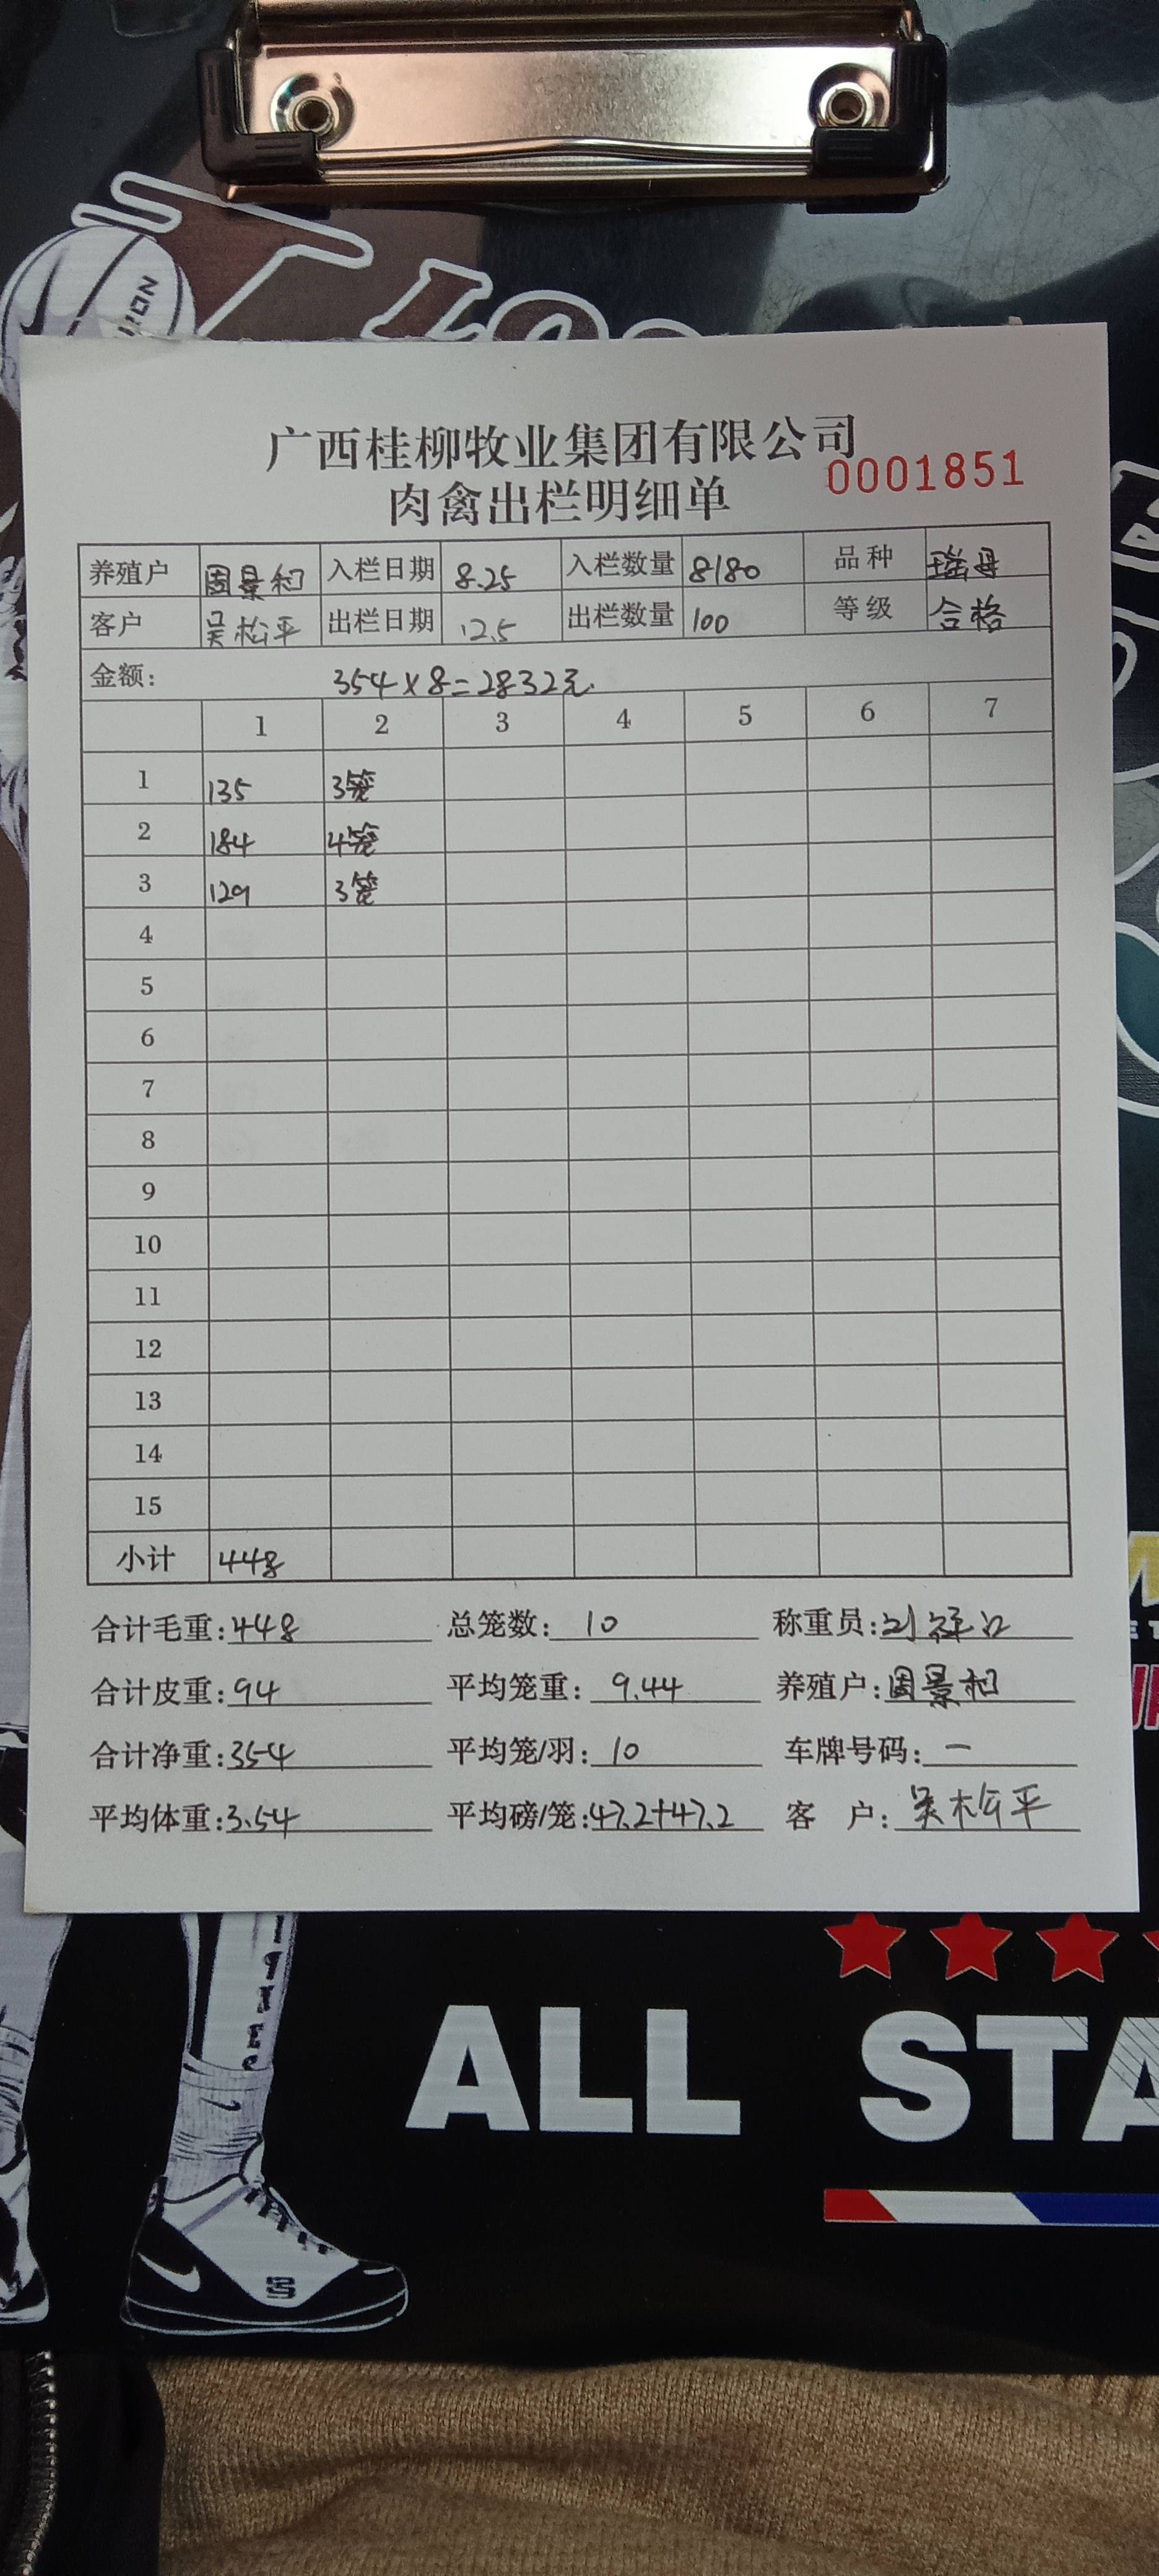 广西桂柳牧业集团有限公司
0001851
肉禽出栏明细单
养殖户 周景和 入栏日期 8.25 入栏数量 8180 品种 瑶母
客户 吴松平 出栏日期 12.5 出栏数量 100 等级 合格
金额: 354×8=2832元.
1 2 3 4 5 6 7
1 135 3笼
2 184 4笼
3 129 3笼
4
5
6
7
8
9
10
11
12
13
14
15
小计 448
合计毛重:448 总笼数: 10 称重员:刘
合计皮重:94 平均笼重: 9.44 养殖户:周景和
合计净重:354 平均笼/羽: 10 车牌号码: 一
平均体重:3.54 平均磅/笼:47.2+47.2 客 户: 吴松平
ALL STA